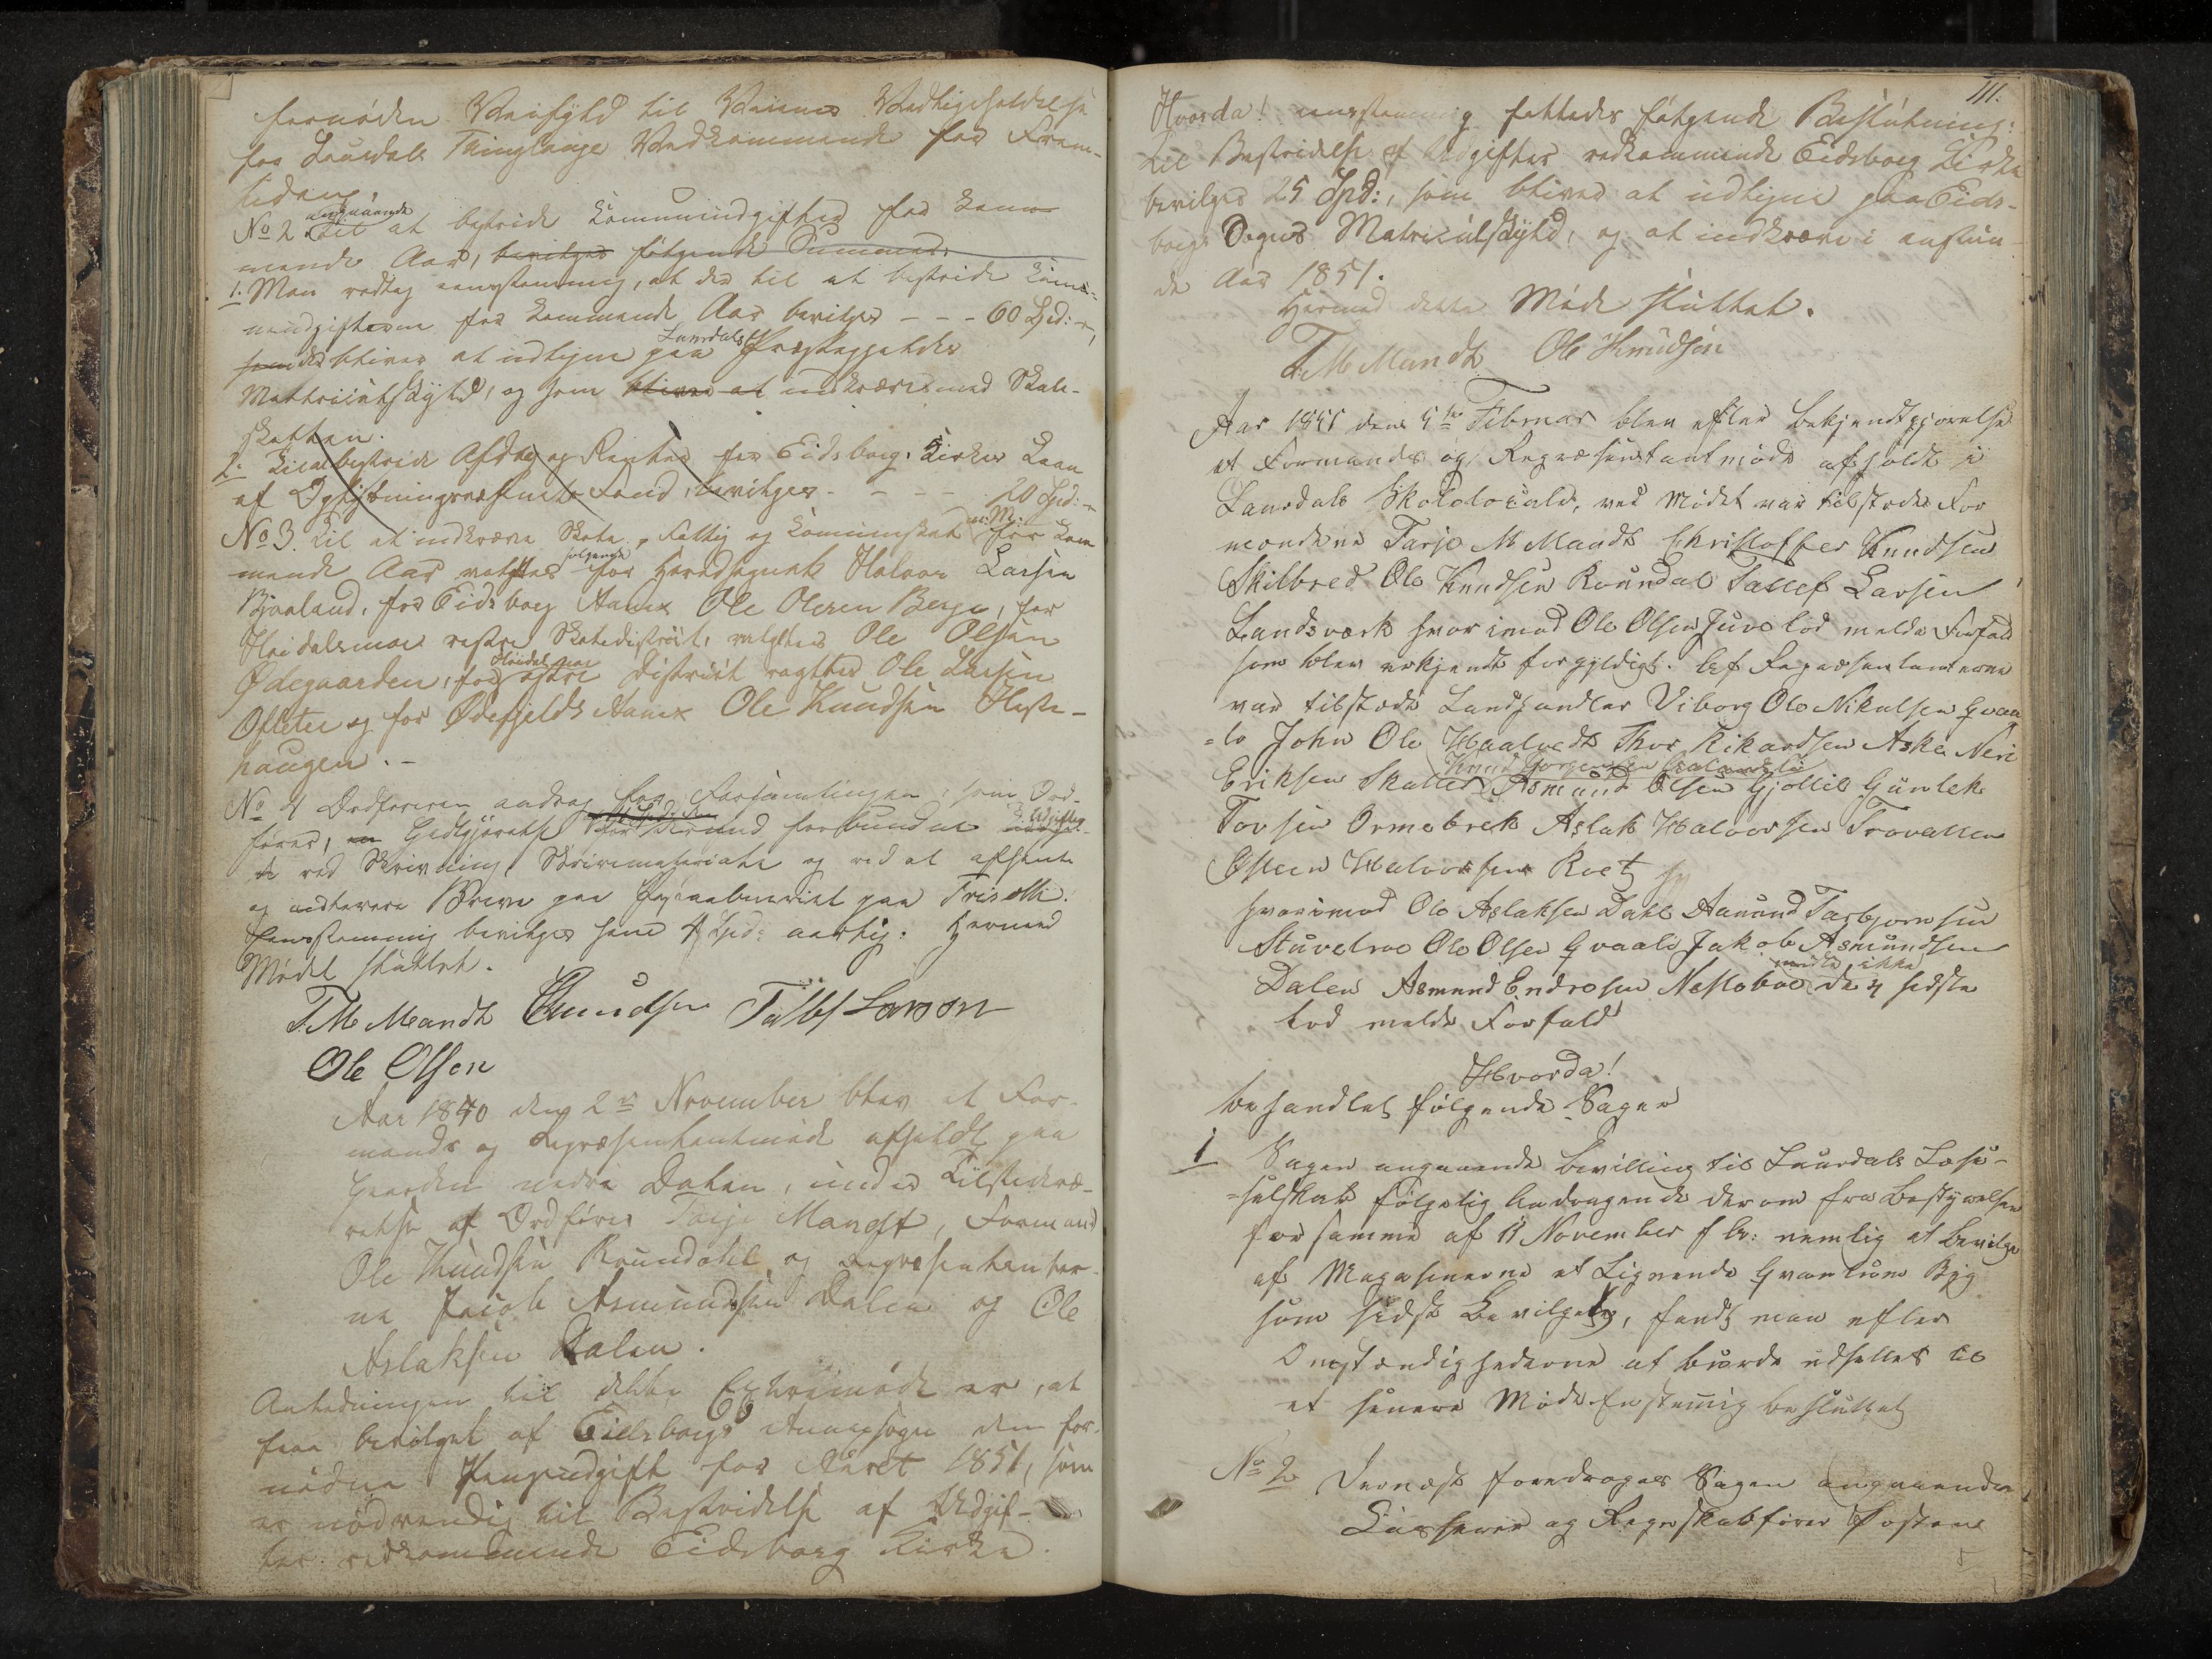 fornøden Veiskyld til Veienes Vedligeholdelse
for Laurdals Thinglauge Vedkommende for Frem-
tiden.
No 2 angaaende til at bestride Communeudgifter for kom-
mende Aar, bevilges følgende Summer:
1. Man vedtog eenstemmig, at der til at bestride Com-
muneudgifterne for kommende Aar bevilges - - - 60 Spd:
som der bliver at udligne paa Laurdals Præstegjelds
Mattriculskyld, og som bliver at indkræves med Skole-
skatten.
2. Til at bestride Afdrag og Renter for Eidsborg Kirkes Laan
af Oplysningsvæsenets Fond, bevilges - - - - 20 Spd:
No 3. Til at indkræve Skole-, Fattig og Communeskat m: M: for kom
mende Aar valgtes følgende for Hovedsognet Halvor Larsen
Bjaaland, for Eidsborg Annex Ole Olesen Berge, for
Høidalsmoe vestre Skoledistrict, valgtes Ole Olsen
Ødegaarden, for Høidalsmoe østre District valgtes Ole Larsen
Ofletei og for Ødefjelds Annex Ole Knudsen Heste-
haugen. -
No 4 Ordføreren androg for Forsamlingen, som Ord-
fører, en Godtgjørelse for Forbundne Udgifter
ved Skrivning, Skrivematerialer og ved at afhente
og udlevere Breve paa Postaabneriet paa Triselli.
Eenstemmig bevilges ham 4 Spd: aarlig. Hermed
Mødet sluttet.
T. M. Mandt CKnudsen Tallef Larson
Ole Olsen
Aar 1850 den 2n November blev et For-
mands og Repræsentantmøde afholdt paa
Gaarden nedre Dalen, under Tilstedevæ-
relse af Ordfører Tarje Mandt, Formand
Ole Knudsen Roundahl og Repræsentanter-
ne Jacob Asmundsen Dalen og Ole
Aslaksen Dalen.
Anledningen til dette Extramøde er, at
faae bevilget af Eidsborgs Annexsogn den for-
nødne Pengeudgift for Aaret 1851, som
er nødvendig til Bestridelse af Udgif-
ter vedkommende Eidsborg Kirke.
111.
Hvorda! eenstemmig fattedes følgende Beslutning:
til Bestridelse af Udgifter vedkommende Eidsborg Kirke
bevilges 25 Spd:, som bliver at udligne paa Eids-
borgs Sogns Matriculskyld, og at indkræve i anstun-
de Aar 1851.
Hermed dette Møde sluttet.
T. M. Mandt Ole Knudsen
Aar 1851 den 5te Februar blev efter bekjendtgjørelse
et Formands og Repræsentantmøde afholdt i
Laurdals Skolelocale, ved Mødet var tilstede For
mændene Tarje M Mandt Christoffer Knudsen
Skilbred Ole Knudsen Roundal Tallef Larsen
Landsværk hvorimod Ole Olsen Juve lod melde Forfald
som blev erkjendt for gyldigt. Af Repræsentanterne
var tilstede Landhandler Viborg Ole Nikulsen Qvaa
=le John Ole Haatvedt Thor Rikardsen Aske Neri
Knud Jorgensen
Eriksen Skatter Asmund Olsen Gjottil Gunlek
Tovsen Ormebrek Aslak Halvorsen Trovatten
Østen Halvorsen Roe
hvorimod Ole Aslaksen Dahl Aanund Tarbjornsen
Stuvelroe Ole Olsen Qvaali Jakob Asmundsen
Dalen Asmund Endresen Neslobøe mødte ikke de 4 sidste
lod melde Forfald
Hvorda!
behandlet følgende Sager
1 Sagen angaaende bevilling til Laurdals Læse-
=selskab følgelig Andragende derom fra Bestyrelsen
for samme af 11 November f A: nemlig at bevilge
af Magasinerne et Lignende Qvantum Byg
som sidst Bevilget, fandt man efter
Omstændighederne at burde udsettes til
et senere Møde Enstemig besluttet
No 2 Dernæst foredroges Sagen angaaende
Kasserer og Regnskabsfører Posten